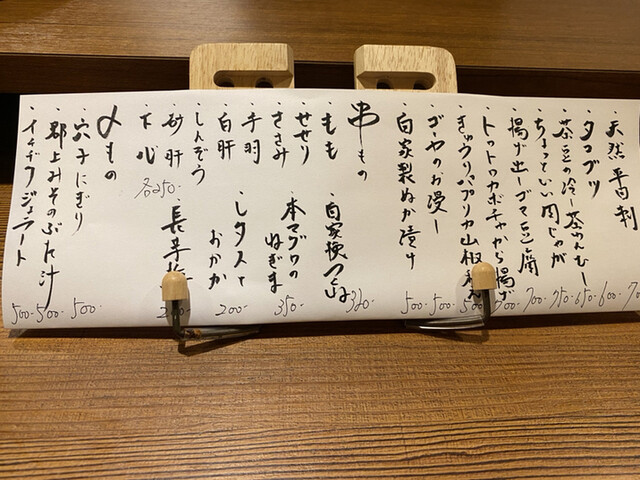 ・天然平目刺 7
・タコブツ 600-
・茶豆の冷し茶わんむし 650-
・ちょっといい肉じゃが 750-
・揚げ出しゴマ豆腐 700-
・トロトロカボチャから揚げ 700-
・きゅうりパプリカ山椒 500
・ゴーヤのお浸し 500-
・自家製ぬか漬け 500-
串もの
・もも
・せせり
・ささみ
・手羽
・白肝
・しんぞう
・砂肝
・下心
各250-
・自家挽つくね 320-
・本マグロのねぎま 350-
・レタスとおかか 200-
・長芋 2
〆もの
・穴子にぎり 500-
・郡上みそのぶた汁 500-
・イチヂクジェラート 500-